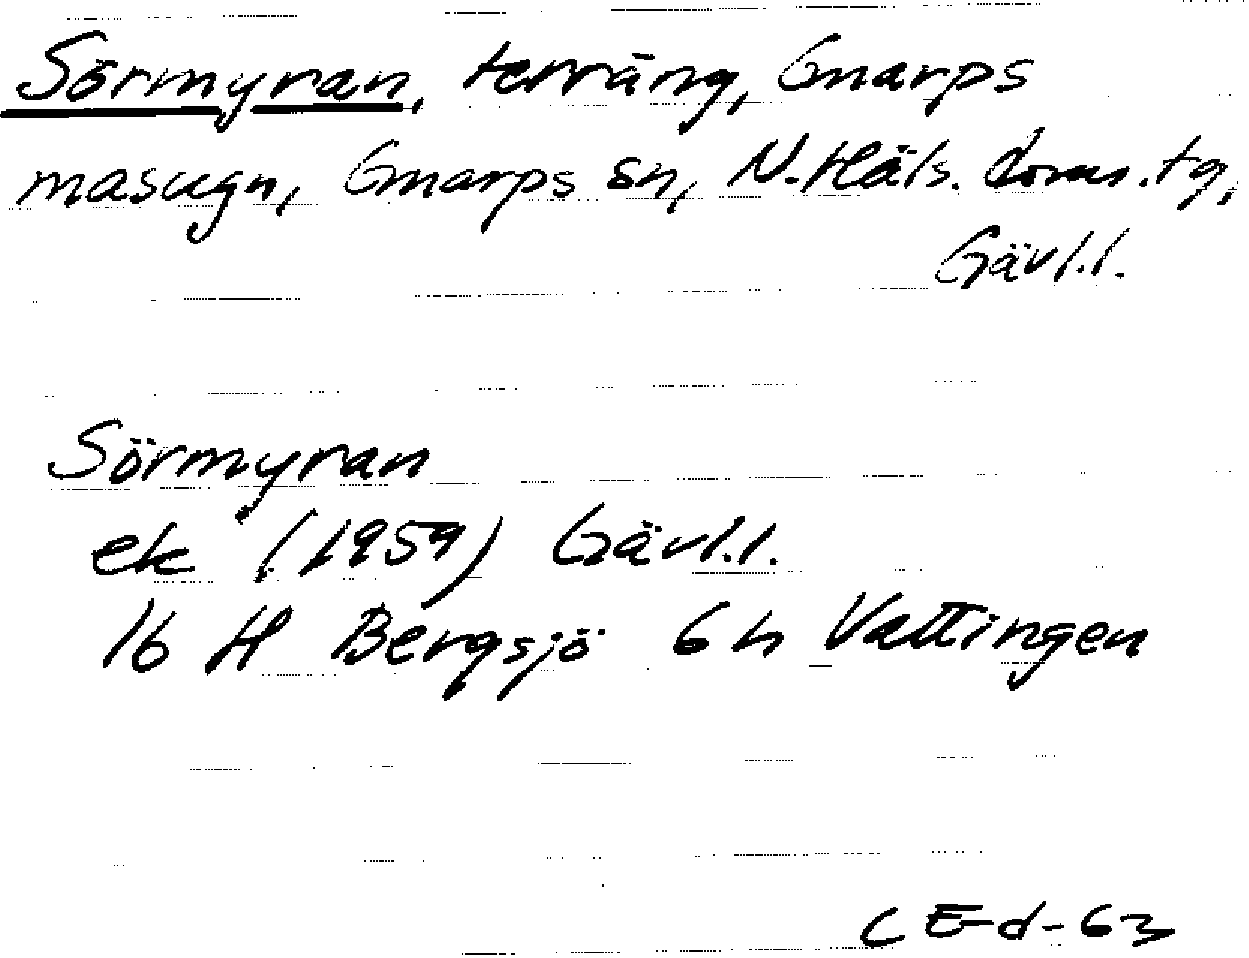 Sörmyran, terräng, Gnarps
masugn, Gnarps sn, N. Häls. doms. tg,
Gävl.l.
Sörmyran
ek (1959) Gävl.l.
16 H Bergsjö 6h Vattingen
CEd-63